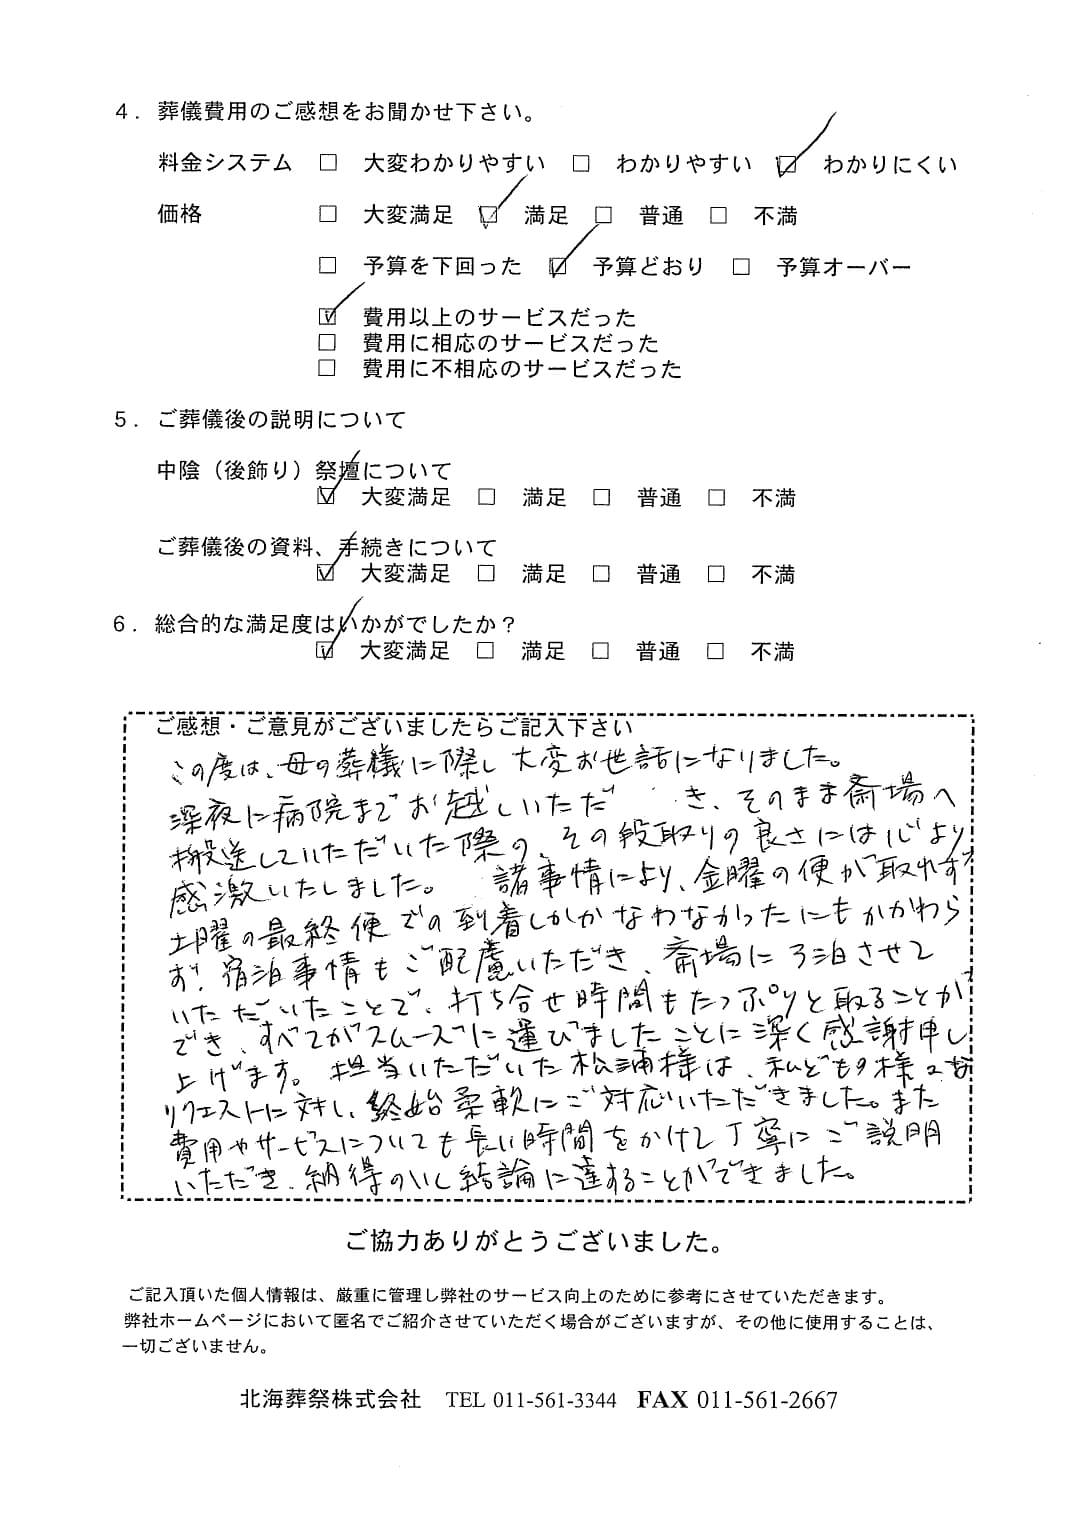 4．葬儀費用のご感想をお聞かせ下さい。
料金システム □ 大変わかりやすい □ わかりやすい ☑ わかりにくい
価格 □ 大変満足 ☑ 満足 □ 普通 □ 不満
□ 予算を下回った ☑ 予算どおり □ 予算オーバー
☑ 費用以上のサービスだった
□ 費用に相応のサービスだった
□ 費用に不相応のサービスだった
5．ご葬儀後の説明について
中陰（後飾り）祭壇について
☑ 大変満足 □ 満足 □ 普通 □ 不満
ご葬儀後の資料、手続きについて
☑ 大変満足 □ 満足 □ 普通 □ 不満
6．総合的な満足度はいかがでしたか？
☑ 大変満足 □ 満足 □ 普通 □ 不満
ご感想・ご意見がございましたらご記入下さい
この度は、母の葬儀に際し大変お世話になりました。
深夜に病院までお越しいただき、そのまま斎場へ
搬送していただいた際の、その段取りの良さには心より
感激いたしました。諸事情により、金曜の便が取れず、
土曜の最終便での到着しかかなわなかったにもかかわら
ず、宿泊事情もご配慮いただき、斎場に3泊させて
いただいたことで、打ち合せ時間もたっぷりと取ることが
でき、すべてがスムーズに運びましたことに深く感謝申し
上げます。担当いただいた松浦様は、私どもの様々な
リクエストに対し、終始柔軟にご対応いただきました。また
費用やサービスについても長い時間をかけて丁寧にご説明
いただき、納得のいく結論に達することができました。
ご協力ありがとうございました。
ご記入頂いた個人情報は、厳重に管理し弊社のサービス向上のために参考にさせていただきます。
弊社ホームページにおいて匿名でご紹介させていただく場合がございますが、その他に使用することは、
一切ございません。
北海葬祭株式会社 TEL 011-561-3344 FAX 011-561-2667